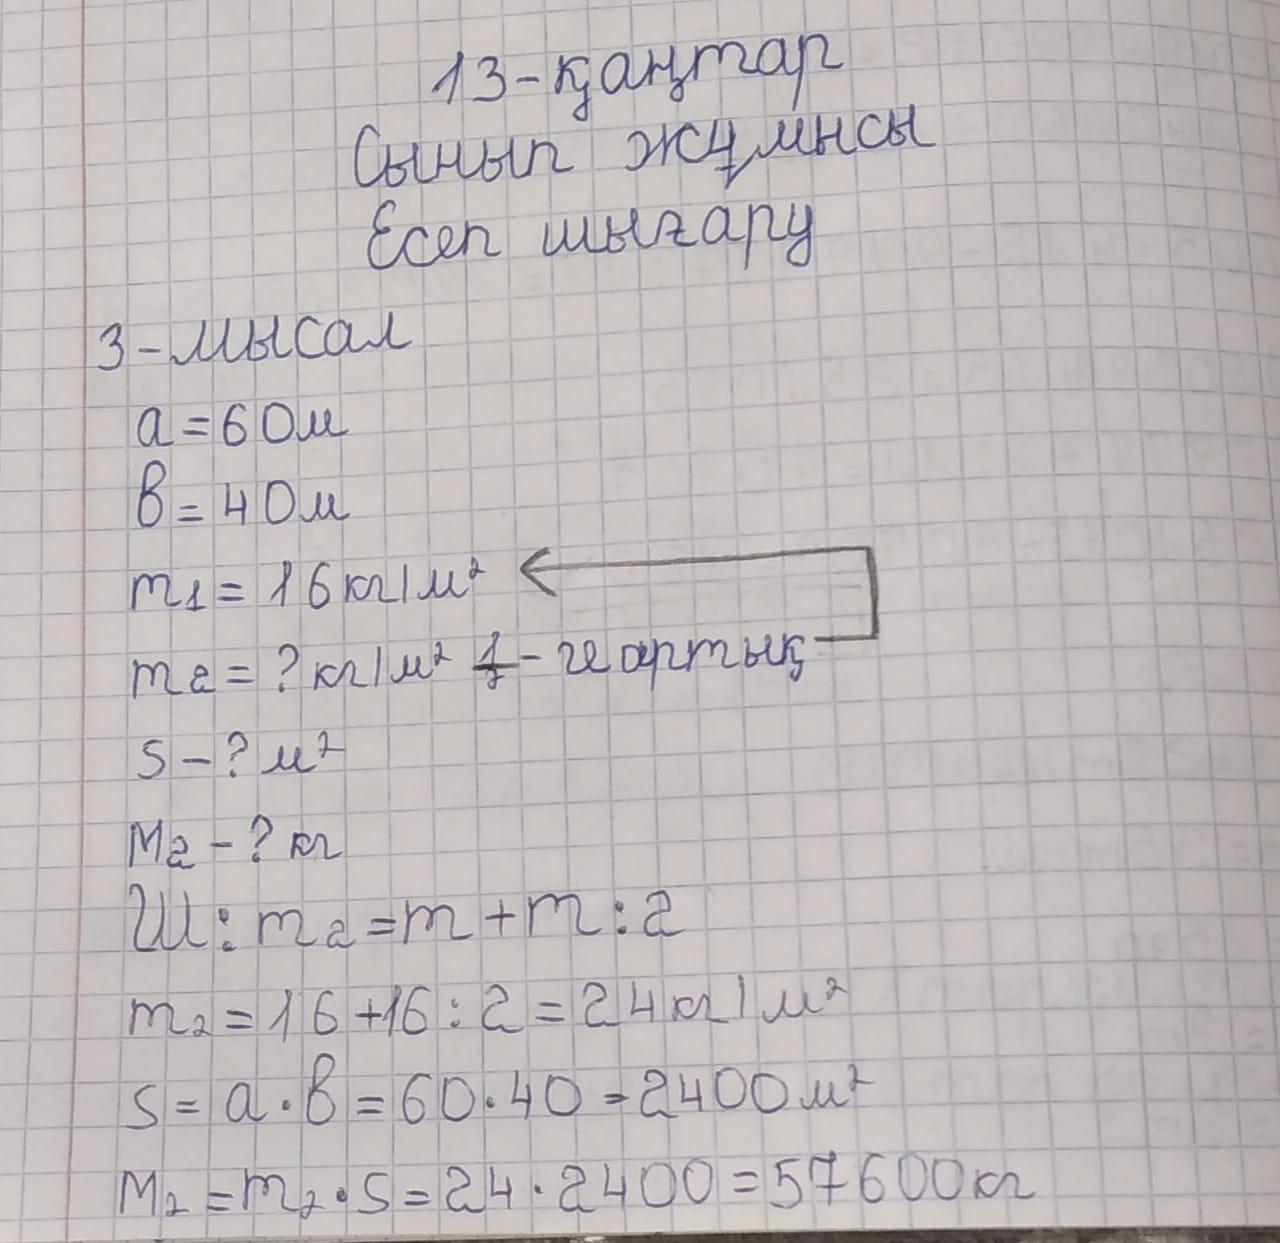 13-қаңтар
Сынып жұмысы
Есеп шығару
3-мысал
a=60м
в=40м
m1=16кг/м²
m2=?кг/м² 1/2-ге артық
S-?м²
M2-?кг
Ш: m2=m+m:2
m2=16+16:2=24кг/м²
S=a·в=60·40=2400м²
M2=m2·S=24·2400=57600кг